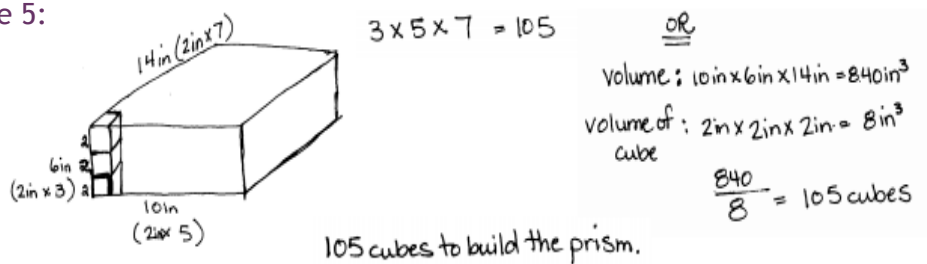 e 5:
14in (2in x 7)
2
6in 2
(2in x 3) 2
10in
(2in x 5)
3 x 5 x 7 = 105
OR
Volume: 10in x 6in x 14in = 840in³
Volume of: 2in x 2in x 2in = 8in³
cube
840
8 = 105 cubes
105 cubes to build the prism.